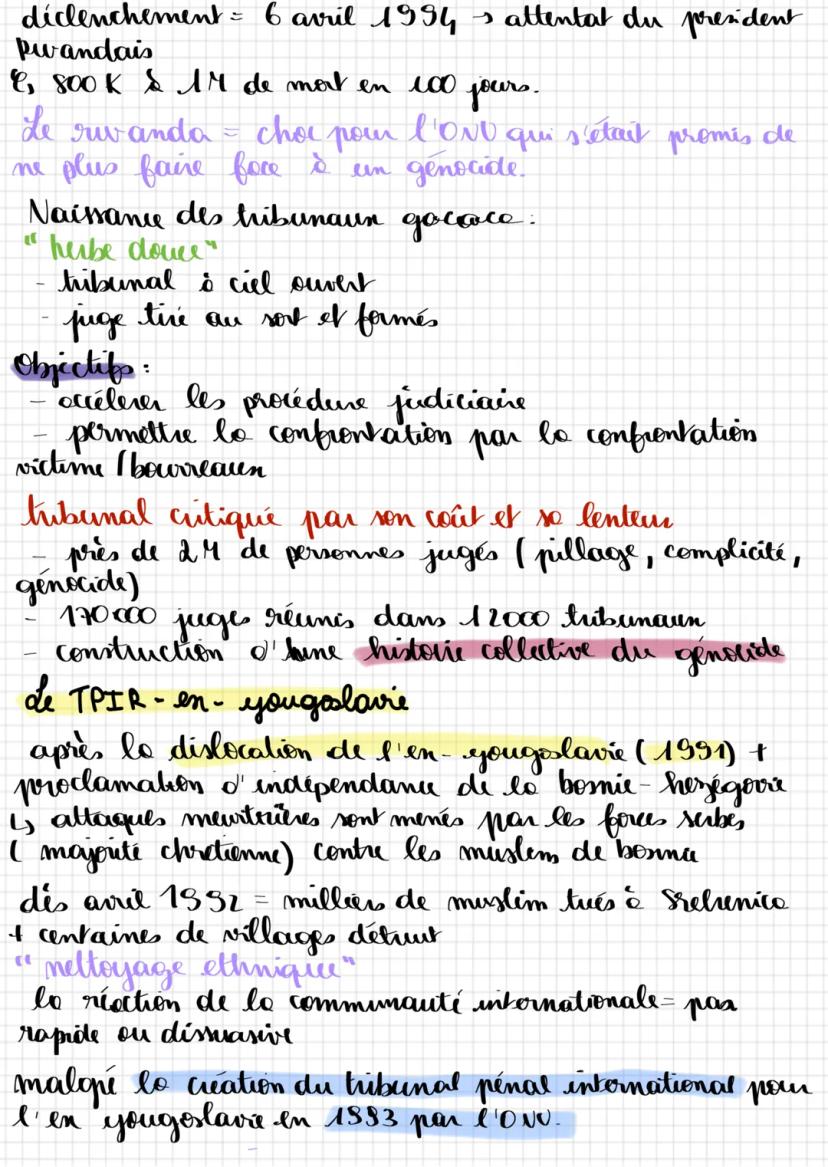 déclenchement = 6 avril 1994 → attentat du president
Rwandais
↳ 800K à 1M de mort en 100 jours.
Le ruvanda = choc pour l'ONU qui s'était promis de
ne plus faire face à un génocide.
Naissance des tribunaux gacaca :
"herbe douce"
- tribunal à ciel ouvert
- juge tiré au sort et formés
Objectifs :
- accélerer les procédure judiciaire
- permettre la confrontation par la confrontation
victime / bourreaux
tribunal critiqué par son coût et sa lenteur
- près de 2M de personnes jugés ( pillage, complicité,
génocide)
- 170 000 juges réunis dans 12000 tribunaux
- construction d'une histoire collective du génocide
Le TPIR - en - yougoslavie
après la dislocation de l'en-yougoslavie ( 1991) +
proclamation d'indépendance de la bosnie - herzégovie
↳ attaques meurtrières sont menés par les forces serbes
( majorité chretienne) contre les muslem de bosnie
dés avril 1992 = milliers de muslim tués à Srebrenica
+ centaines de villages détruit
"nettoyage ethnique"
la réaction de la communauté internationale = pas
rapide ou dissuasive
malgré la création du tribunal pénal international pour
l'en yougoslavie en 1993 par l'ONU.